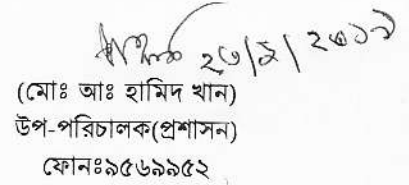 ২৩/২/২০১৯
(মোঃ আঃ হামিদ খান)
উপ-পরিচালক(প্রশাসন)
ফোনঃ৯৫৬৯৯৫২